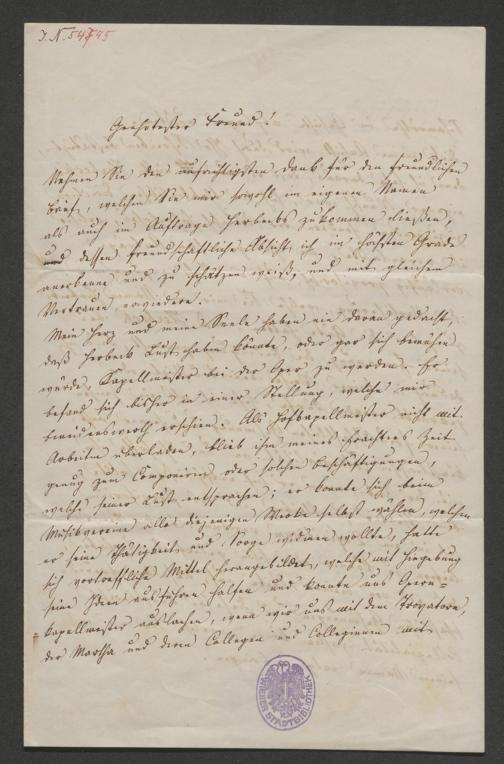 J. N. 54745
Geehrtester Freund!
Nehmen Sie den aufrichtigsten Dank für den freundlichen
Brief, welchen Sie mir sowohl in eigenem Namen
als auch im Auftrage Herbecks zukommen ließen,
und dessen freundschaftliche Absicht, ich im höchsten Grade
anerkenne und zu schätzen weiß, und mit gleichem
Vertrauen erwiedere.
Mein Herz und meine Seele haben nie daran gedacht,
daß Herbeck Lust haben könnte, oder gar sich bemühen
würde, Kapellmeister bei der Oper zu werden. Er
befand sich bisher in einer Stellung, welche mir
beneidenswerth erschien. Als Hofkapellmeister nicht mit
Arbeiten überladen, blieb ihm meines Erachtens Zeit
genug zum Componiren oder solchen Beschäftigungen,
welche seiner Lust entsprachen; er konnte sich beim
Musikvereine alle diejenigen Werke selbst wählen, welchen
er seine Thätigkeit und Sorge widmen wollte, hatte
sich vortreffliche Mittel herangebildet, welche mit Hingebung
seine Ideen ausführen halfen und konnte uns Opern=
=kapellmeister auslachen, wenn wir uns mit dem Trovatore,
der Martha und deren Collegen und Colleginnen mit
WIENER STADTBIBLIOTHEK